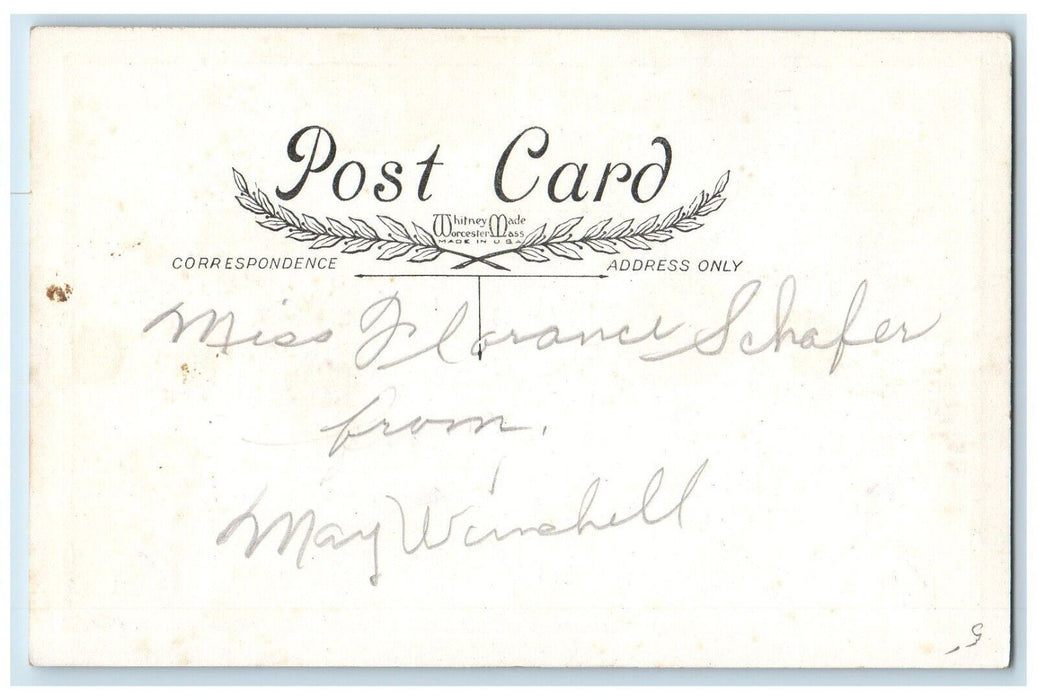 Post Card
Whitney Made
Worcester Mass
MADE IN USA
CORRESPONDENCE ADDRESS ONLY
Miss Florance Schafer
from.
May Winchell